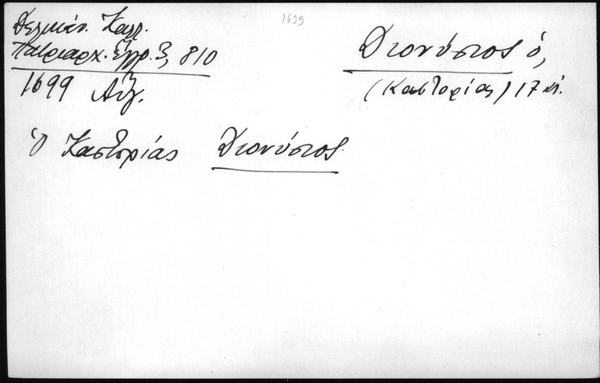 1699
Δελικάν. Καλλ.
Πατριαρχ. Έγγρ. 3, 810
1699 Αύγ.
Διονύσιος ὁ,
(Καστορίας) 17 αἰ.
Ὁ Καστορίας Διονύσιος